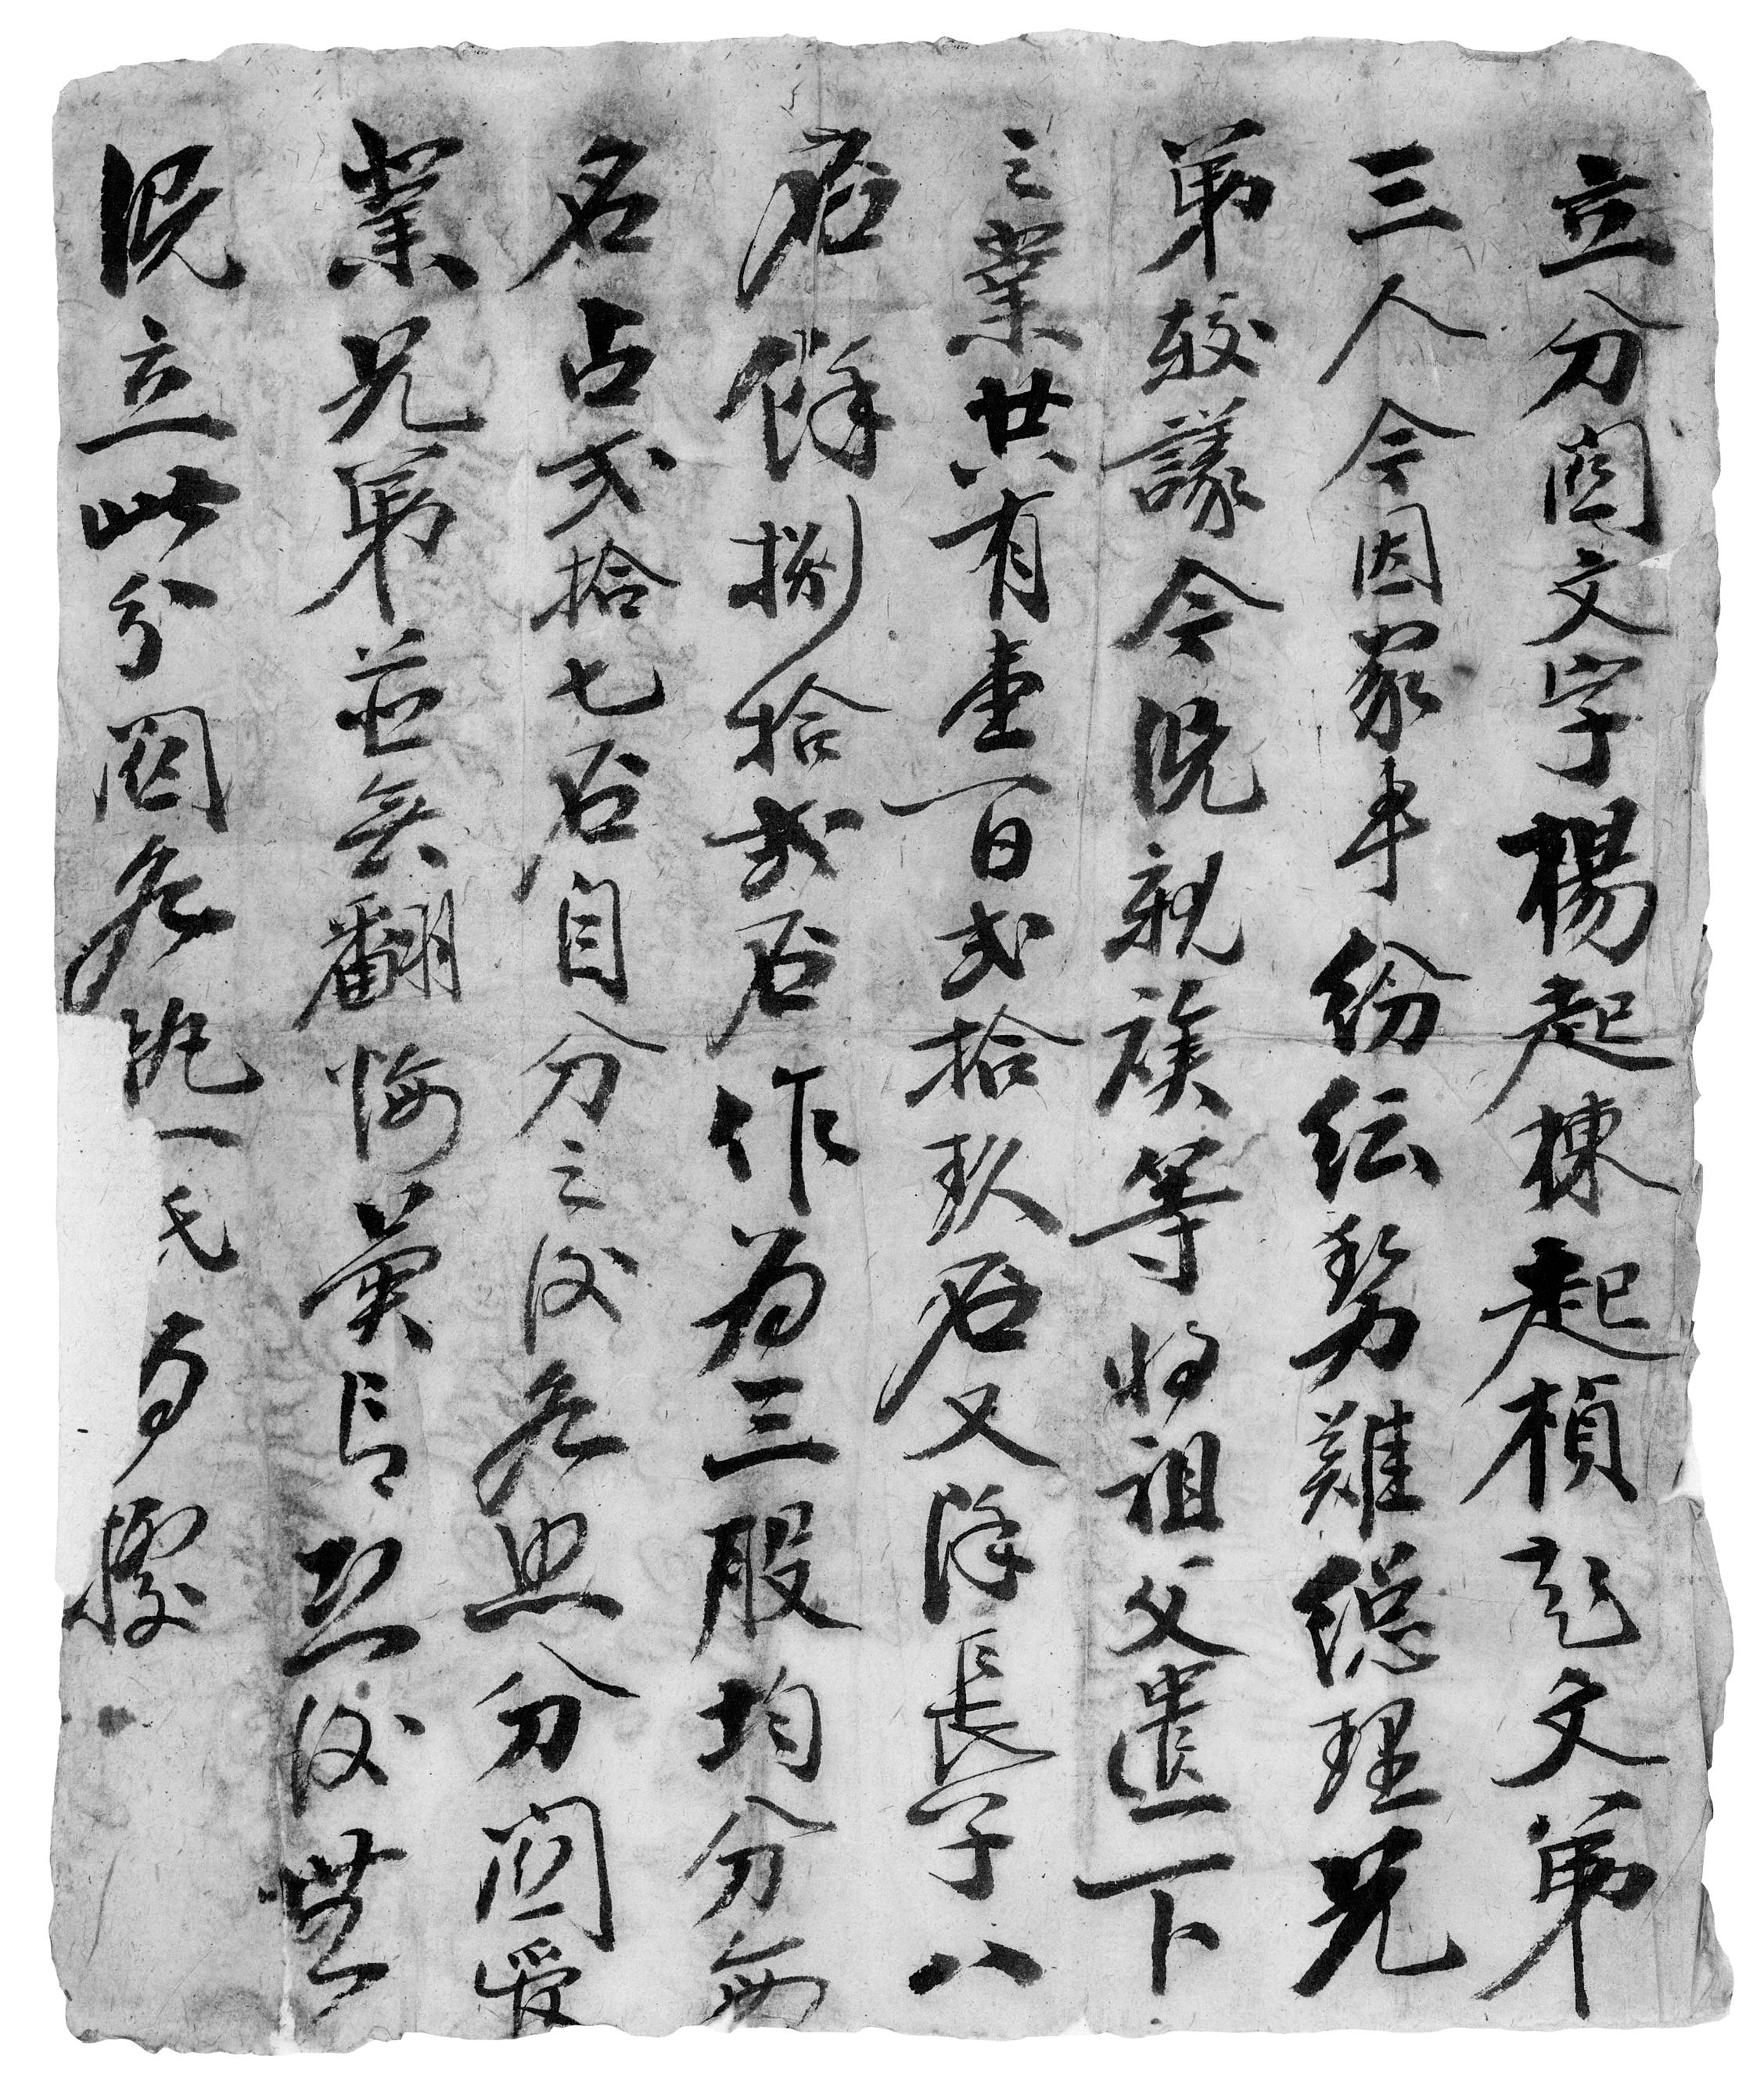 立分関文字楊起棟起楨起文弟
三人今因家事紛紜勢難總理兄
弟較議今浼親族等將祖父遺下
之業共有壹百弍拾玖石又除長子八
石餘捌拾弍石作為三股均分每
名占弍拾七石自分之後各照分関受
業兄弟並無翻悔異言恐後無
凴立此分関各執一帋為據